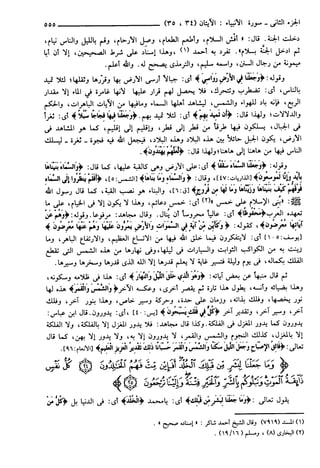 الجزء الثاني - سورة الأنبياء : الآيتان (٣٤ ، ٣٥) ٥٥٥
دخلت الجنة. قال: « أفش السلام، وأطعم الطعام، وصل الأرحام، وقم بالليل والناس نيام،
ثم ادخل الجنة بسلام». تفرد به أحمد (١) ، وهذا إسناد على شرط الصحيحين، إلا أن أبا
ميمونة من رجال السنن، واسمه سليم، والترمذي يصحح له. والله أعلم.
وقوله: ﴿وَجَعَلْنَا فِي الْأَرْضِ رَوَاسِيَ﴾ أي: جبالاً أرسى الأرض بها وقررها وثقلها؛ لئلا تميد
بالناس، أي: تضطرب وتتحرك، فلا يحصل لهم قرار عليها لأنها غامرة في الماء إلا مقدار
الربع، فإنه باد للهواء والشمس، ليشاهد أهلها السماء ومافيها من الآيات الباهرات، والحكم
والدلالات؛ ولهذا قال: ﴿أَن تَمِيدَ بِهِمْ﴾ أي: لئلا تميد بهم. ﴿وَجَعَلْنَا فِيهَا فِجَاجًا سُبُلًا﴾ أي: ثغراً
في الجبال، يسلكون فيها طرقاً من قطر إلى قطر، وإقليم إلى إقليم، كما هو المشاهد في
الأرض، يكون الجبل حائلاً بين هذه البلاد وهذه البلاد، فيجعل الله فيه فجوة - ثغرة - ليسلك
الناس فيها من هاهنا إلى هاهنا؛ ولهذا قال: ﴿لَعَلَّهُمْ يَهْتَدُونَ﴾.
وقوله: ﴿وَجَعَلْنَا السَّمَاءَ سَقْفًا﴾ أي: على الأرض وهي كالقبة عليها، كما قال: ﴿وَالسَّمَاءَ بَنَيْنَاهَا
بِأَيْدٍ وَإِنَّا لَمُوسِعُونَ﴾ [الذاريات: ٤٧]، وقال: ﴿وَالسَّمَاءِ وَمَا بَنَاهَا﴾ [الشمس: ٥]، ﴿أَفَلَمْ يَنظُرُوا إِلَى السَّمَاءِ
فَوْقَهُمْ كَيْفَ بَنَيْنَاهَا وَزَيَّنَّاهَا وَمَا لَهَا مِن فُرُوجٍ﴾ [ق: ٦]، والبناء هو نصب القبة، كما قال رسول الله
ﷺ: «بني الإسلام على خمس »(٢) أي: خمس دعائم، وهذا لا يكون إلا في الخيام، على ما
تعهده العرب ﴿مَّحْفُوظًا﴾ أي: عالياً محروساً أن يُنال. وقال مجاهد: مرفوعا. وقوله: ﴿وَهُمْ عَنْ
آيَاتِهَا مُعْرِضُونَ﴾، كقوله: ﴿وَكَأَيِّن مِّنْ آيَةٍ فِي السَّمَاوَاتِ وَالْأَرْضِ يَمُرُّونَ عَلَيْهَا وَهُمْ عَنْهَا مُعْرِضُونَ﴾
[يوسف: ١٠٥] أي: لايتفكرون فيما خلق الله فيها من الاتساع العظيم، والارتفاع الباهر، وما
زينت به من الكواكب الثوابت والسيارات في ليلها، وفي نهارها من هذه الشمس التي تقطع
الفلك بكماله، في يوم وليلة فتسير غاية لا يعلم قدرها إلا الله الذي قدرها وسخرها وسيرها.
ثم قال منبها عن بعض آياته: ﴿وَهُوَ الَّذِي خَلَقَ اللَّيْلَ وَالنَّهَارَ﴾ أي: هذا في ظلامه وسكونه،
وهذا بضيائه وأنسه، يطول هذا تارة ثم يقصر أخرى، وعكسه الآخر ﴿وَالشَّمْسَ وَالْقَمَرَ﴾ هذه لها
نور يخصها، وفلك بذاته، وزمان على حدة، وحركة وسير خاص، وهذا بنور آخر، وفلك
آخر، وسير آخر، وتقدير آخر ﴿كُلٌّ فِي فَلَكٍ يَسْبَحُونَ﴾ [يس: ٤٠]، أي: يدورون. قال ابن عباس:
يدورون كما يدور المغزل في الفلكة. وكذا قال مجاهد: فلا يدور المغزل إلا بالفلكة، ولا الفلكة
إلا بالمغزل، كذلك النجوم والشمس والقمر، لا يدورون إلا به، ولا يدور إلا بهن، كما قال
تعالى: ﴿فَالِقُ الْإِصْبَاحِ وَجَعَلَ اللَّيْلَ سَكَنًا وَالشَّمْسَ وَالْقَمَرَ حُسْبَانًا ذَٰلِكَ تَقْدِيرُ الْعَزِيزِ الْعَلِيمِ﴾ [الأنعام: ٩٦].
﴿وَمَا جَعَلْنَا لِبَشَرٍ مِّن قَبْلِكَ الْخُلْدَ أَفَإِن مِّتَّ فَهُمُ الْخَالِدُونَ ﴿٣٤﴾ كُلُّ نَفْسٍ
ذَائِقَةُ الْمَوْتِ وَنَبْلُوكُم بِالشَّرِّ وَالْخَيْرِ فِتْنَةً وَإِلَيْنَا تُرْجَعُونَ ﴿٣٥﴾﴾
يقول تعالى: ﴿وَمَا جَعَلْنَا لِبَشَرٍ مِّن قَبْلِكَ﴾ أي: يامحمد ﴿الْخُلْدَ﴾ أي: في الدنيا بل ﴿كُلُّ مَنْ
(١) المسند (٧٩١٩) وقال الشيخ أحمد شاكر : « إسناده صحيح » .
(٢) البخاري (٨) ، ومسلم (١٩/١٦) .